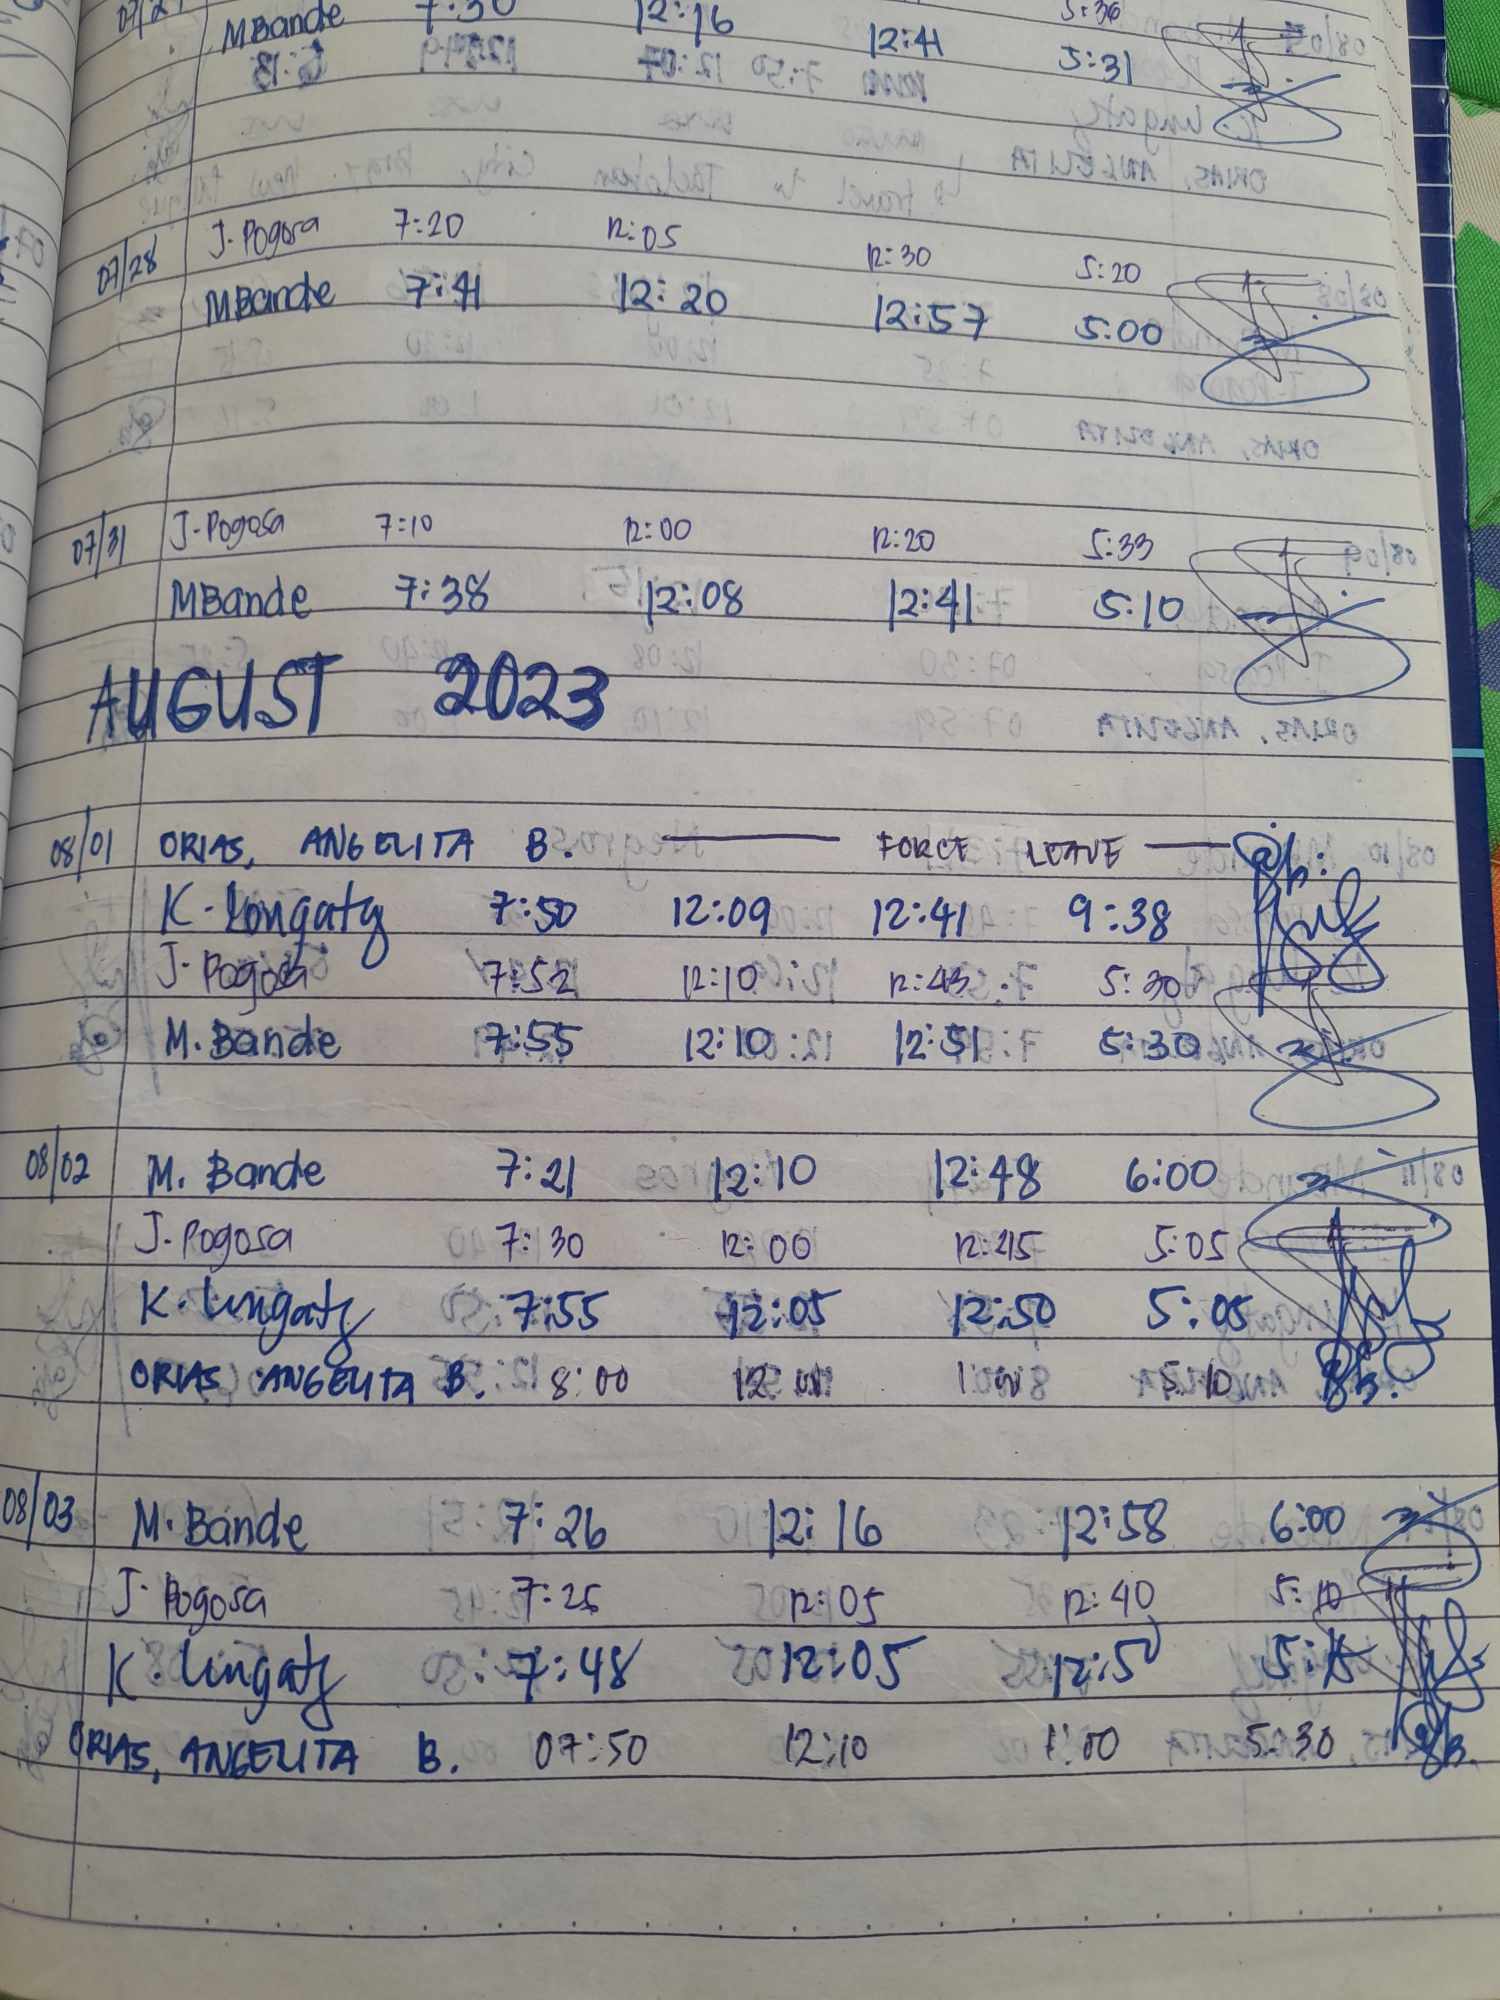 5:36
07/27 MBande 7:30 12:16 12:41 5:31
07/28 J. Pogosa 7:20 12:05 12:30 5:20
MBande 7:41 12:20 12:57 5:00
07/31 J. Pogosa 7:10 12:00 12:20 5:33
MBande 7:38 12:08 12:41 5:10
AUGUST 2023
08/01 ORIAS, ANGELITA B. FORCE LEAVE
K. Longaty 7:50 12:09 12:41 9:38
J. Pogosa 7:52 12:10 12:43 5:30
M. Bande 7:55 12:10 12:51 5:30
08/02 M. Bande 7:21 12:10 12:48 6:00
J. Pogosa 7:30 12:00 12:45 5:05
K. Lungaty 7:55 12:05 12:50 5:05
ORIAS, ANGELITA B. 8:00 5:10
08/03 M. Bande 7:26 12:16 12:58 6:00
J. Pogosa 7:25 12:05 12:40 5:10
K. Lungaty 7:48 12:05
ORIAS, ANGELITA B. 07:50 12:10 1:00 5:30